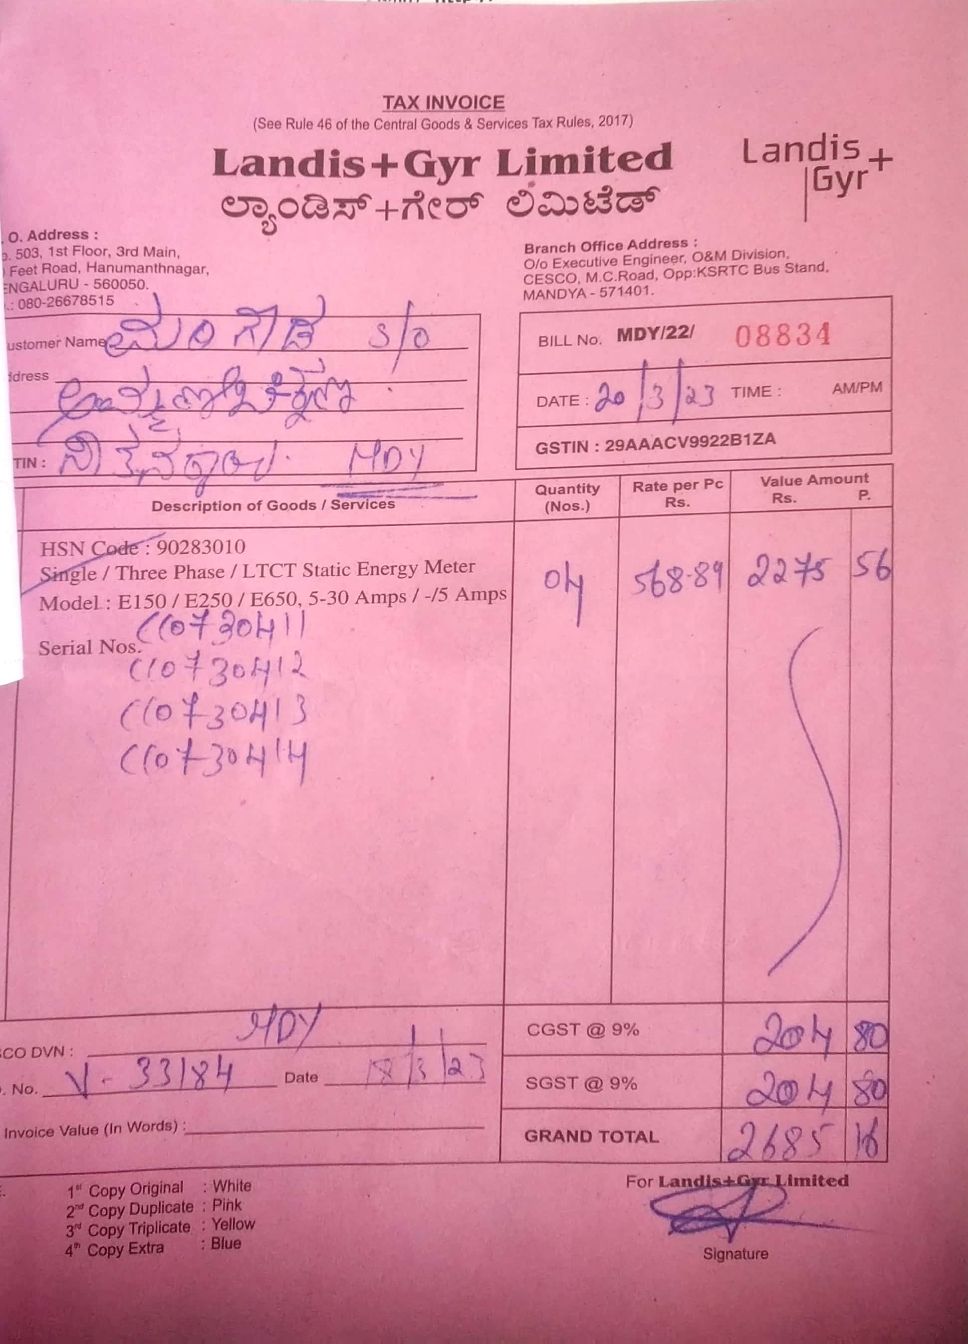 TAX INVOICE
(See Rule 46 of the Central Goods & Services Tax Rules, 2017)
Landis+Gyr Limited
ಲ್ಯಾಂಡಿಸ್+ಗೇರ್ ಲಿಮಿಟೆಡ್
Landis
Gyr+
O. Address :
503, 1st Floor, 3rd Main,
Feet Road, Hanumanthnagar,
ENGALURU - 560050.
.: 080-26678515
Branch Office Address :
O/o Executive Engineer, O&M Division,
CESCO, M.C.Road, Opp:KSRTC Bus Stand,
MANDYA - 571401.
ustomer Name S/o
dress
TIN : MDY
BILL No. MDY/22/ 08834
DATE : 20/3/23 TIME : AM/PM
GSTIN : 29AAACV9922B1ZA
Description of Goods / Services
Quantity (Nos.)
Rate per Pc Rs.
Value Amount Rs. P.
HSN Code : 90283010
Single / Three Phase / LTCT Static Energy Meter
Model : E150 / E250 / E650, 5-30 Amps / -/5 Amps
04 568-89 2275 56
Serial Nos. CC0730411
CC0730412
CC0730413
CC0730414
CO DVN : MDY
. No. V- 33184 Date 18/3/23
Invoice Value (In Words) :
CGST @ 9% 204 80
SGST @ 9% 204 80
GRAND TOTAL 2685 16
1st Copy Original : White
2nd Copy Duplicate : Pink
3rd Copy Triplicate : Yellow
4th Copy Extra : Blue
For Landis+Gyr Limited
Signature